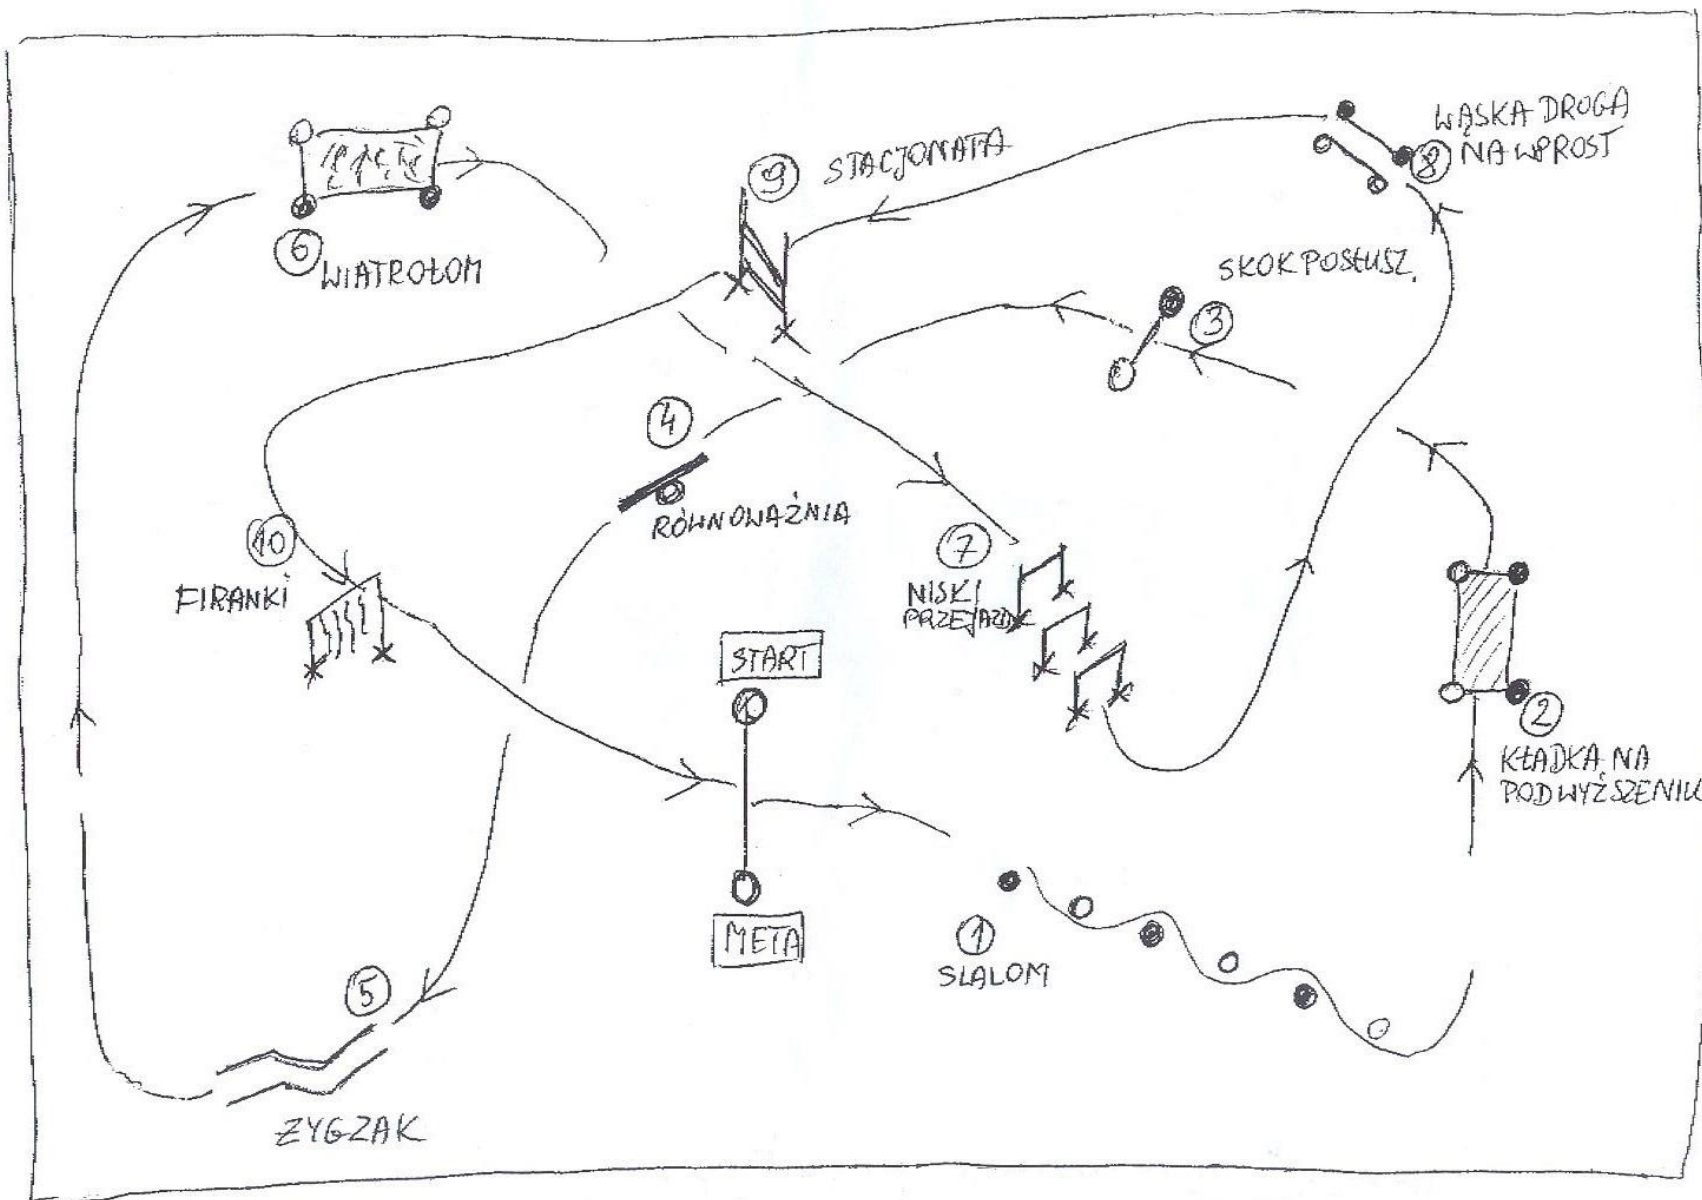 6 WIATROŁOM
9 STACJONATA
WĄSKA DROGA
8 NA WPROST
SKOK POSŁUSZ.
3
4
RÓWNOWAŻNIA
10
FIRANKI
7
NISKI
PRZEJAZD
START
META
2
KŁADKA NA
PODWYŻSZENIU
1
SLALOM
5
ZYGZAK